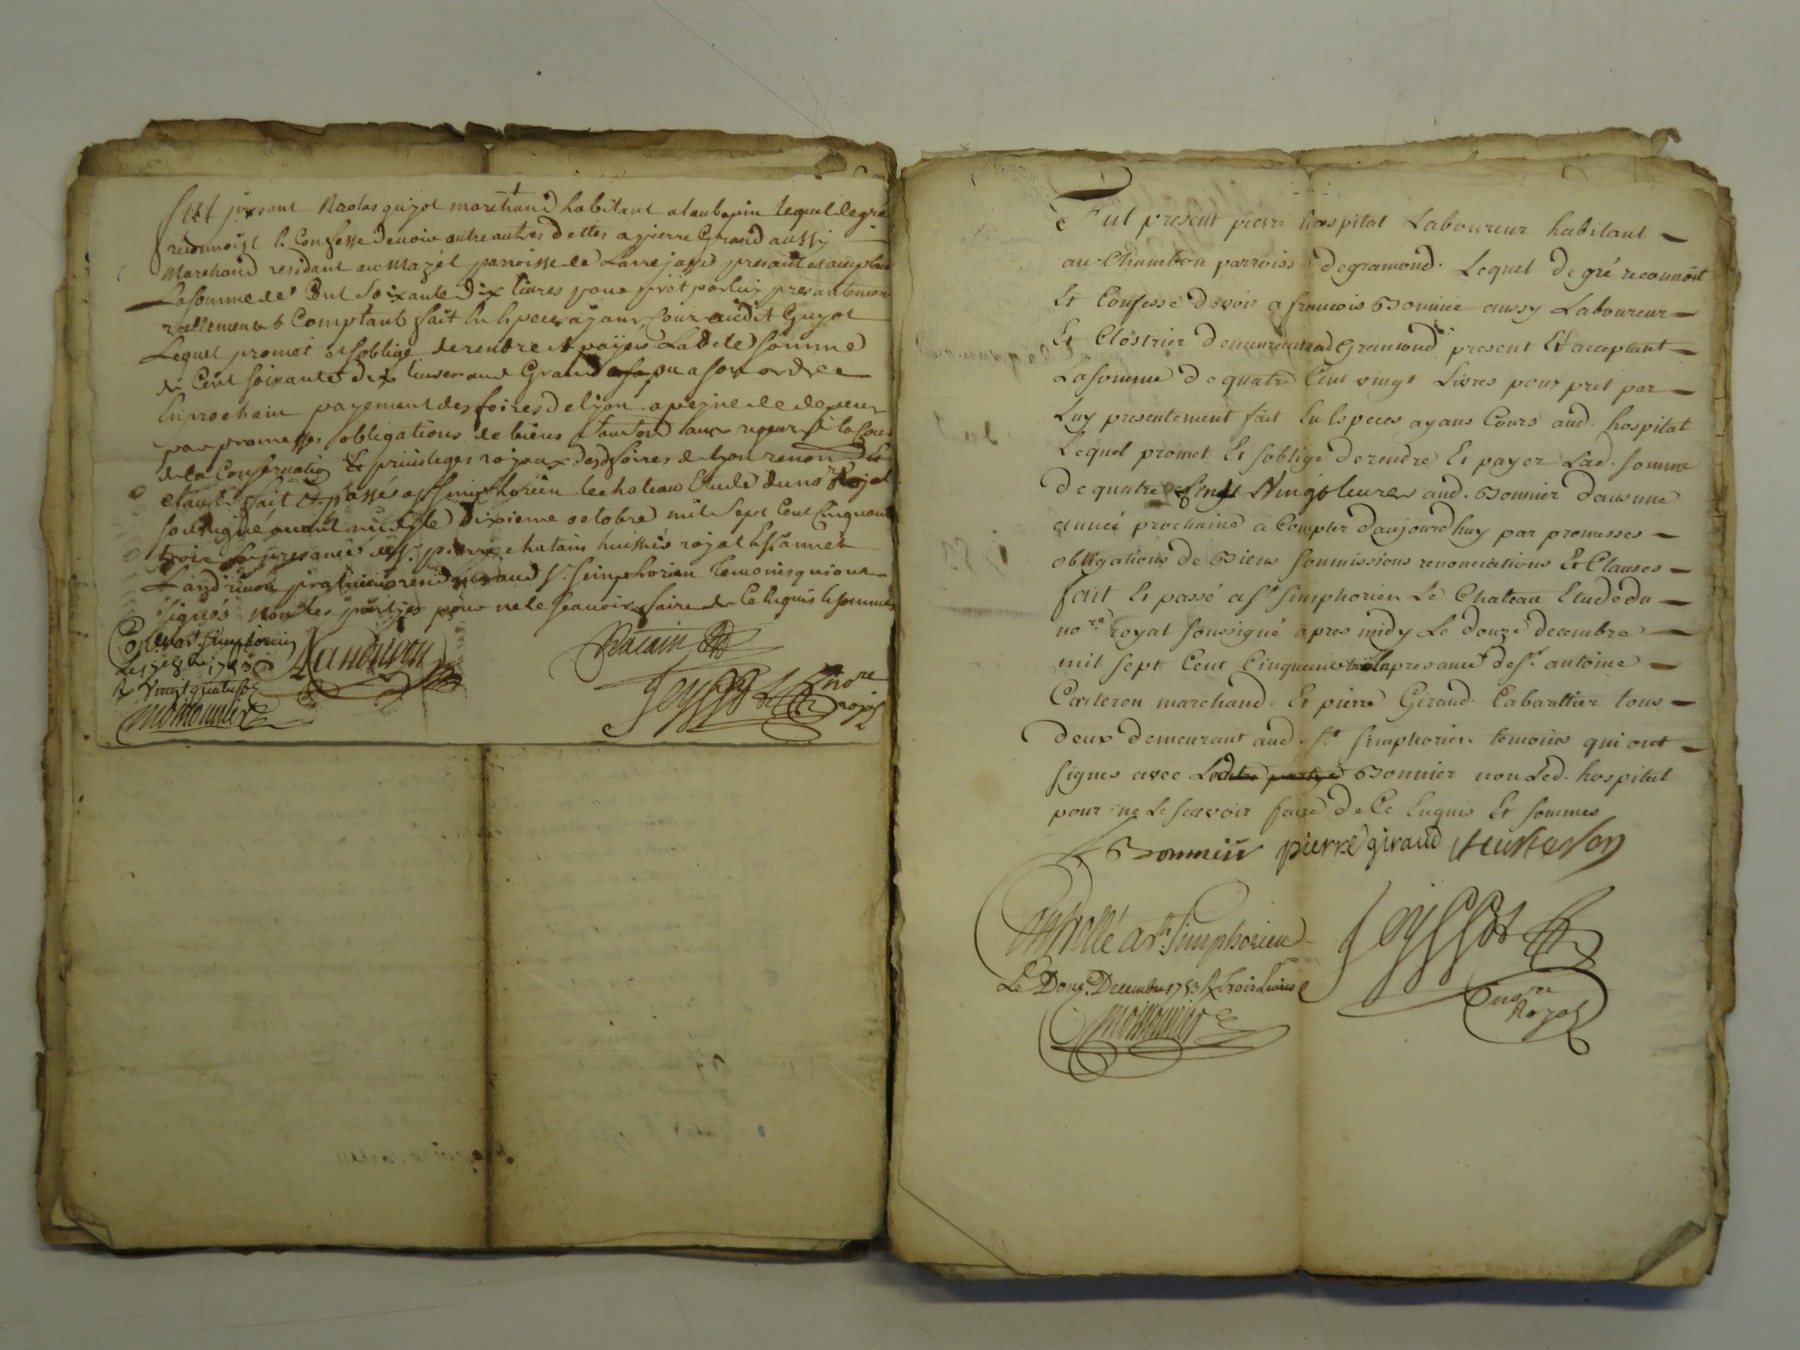 fut present Nicolas guyot marchand habitant a laubepin lequel de gré
reconnoist et Confesse devoir outre autres dettes a pierre Giraud aussy
Marchand residant au mazel parroisse de Larrejasse present et acceptant
La somme de Cent soixante dix livres pour prêt par luy presentement
reellement et Comptant fait en especes ayans Cour audit Guyot
Lequel promet et soblige de rendre et payer Ladte somme
de Cent soixante dix livres aud Giraud ou a son ordre
en prochain payement des foires de lyon a peyne de depens
par promesses obligations de biens
de la Conservation et privileges royaux des foires de lyon renon
clause fait et passé a st simphorien le chateau Etude du nore Royal
soussigné avant midy le dixieme octobre mil sept Cent Cinquante
trois En presance de sr pierre chatain huissier royal et
Landrivon praticien resid aud st simphorien temoins qui ont
signés non les parties pour ne le sçavoir faire de Ce enquis et sommés
Landrivon
Chatain
a st simphorien
1753
vingt quatre
monmonnier
Teyssot
nore
royal
Fut present pierre hospital Laboureur habitant
au Chambon parroisse de gramond. Lequel de gré reconnoit
Et Confesse devoir a francois Bonnier aussy Laboureur
Et Clostrier demeurant aud Gramond present Et acceptant
La somme de quatre Cent vingt Livres pour pret par
Luy presentement fait En Especes ayans Cours aud. hospital
Lequel promet Et soblige de rendre Et payer Lad. somme
de quatre Cent Vingt livres aud. Bonnier dans une
année prochaine a Compter daujourdhuy par promesses
obligations de Biens soumissions renonciations Et Clauses
fait Et passé a st simphorien Le Chateau Etude du
nore royal soussigné apres midy Le douze decembre
mil sept Cent Cinquante trois En presance de sr. antoine
Carteron marchand. Et pierre Giraud. Cabarettier tous
deux demeurant aud. st simphorien temoins qui ont
signés avec Led Bonnier non Led. hospital
pour ne Le scavoir faire de Ce Enquis Et sommés
Bonnier pierre giraud
Controllé a st. simphorien
Le Douze Decembre 1753 Rx trois Livres
monmonnier
Teyssot
nore
Royal